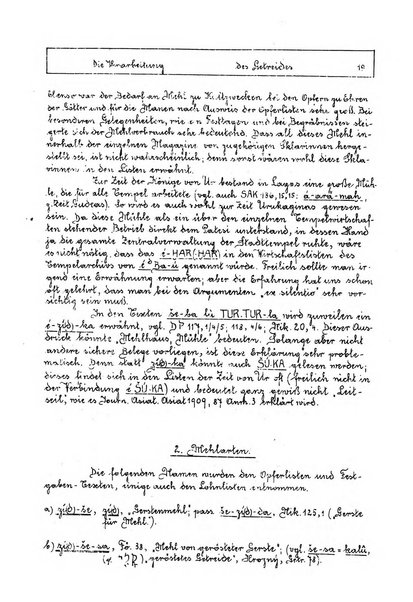 Die Verarbeitung des Getreides 19
Ebenso war der Bedarf an Mehl zu Kultzwecken bei den Opfern zu Ehren
der Götter und für die Manen nach Ausweis der Opferlisten sehr groß. Bei
besonderen Gelegenheiten, wie an Festtagen und bei Begräbnissen stei-
gerte sich der Mehlverbrauch sehr bedeutend. Dass all dieses Mehl in-
nerhalb der einzelnen Magazine von zugehörigen Sklavinnen herge-
stellt sei, ist nicht wahrscheinlich; denn sonst wären wohl diese Skla-
vinnen in den Listen erwähnt.
Zur Zeit der Könige von Ur bestand in Lagaš eine große Müh-
le, die für alle Tempel arbeitete (vgl. auch SAK 136, 15, 15: á-ará-mah,
z. Zeit Gudeas). So wird es auch wohl zur Zeit Urukaginas gewesen
sein. Da diese Mühle als ein über den einzelnen Tempelwirtschaf-
ten stehender Betrieb direkt dem Patesi unterstand, in dessen Hand
ja die gesamte Zentralverwaltung der Stadttempel ruhte, wäre
es nicht nötig, dass das é-HAR(-HAR) in den Wirtschaftslisten des
Tempelarchivs von é Ba-ú genannt würde. Freilich sollte man ir-
gend eine Erwähnung erwarten; aber die Erfahrung hat uns schon
oft gelehrt, dass man bei den Argumenten „ex silentio" sehr vor-
sichtig sein muß.
In den Texten še-ba lù TUR.TUR-la wird zuweilen ein
é-zíd)-ka erwähnt, vgl. DP 117, Nik. 20, Dieser Aus-
druck könnte „Mehlhaus, Mühle" bedeuten. Solange aber nicht
andere sichere Belege vorliegen, ist diese Erklärung sehr proble-
matisch. Denn statt zíd)-ka könnte auch ŠÚ.KA gelesen werden;
dieses findet sich in den Listen der Zeit von Ur (freilich nicht in
der Verbindung é ŠÚ.KA) und bedeutet ganz gewiß nicht „Leit-
seil", wie es Journ. Asiat. 1909, 87 Anm. 3 erklärt wird.
2. Mehlarten.
Die folgenden Namen wurden den Opferlisten und Fest-
gaben-Texten, einige auch den Lohnlisten entnommen.
a) zíd)-še, zíd), „Gerstenmehl", pass. še-zíd)-da, Nik. 125, 1 („Gerste
für Mehl").
b) zíd)-še-sa, Fö. 38, „Mehl von gerösteter Gerste"; (vgl. še-sa = kalû,
„geröstetes Getreide", Hrozný, Getr. 78).